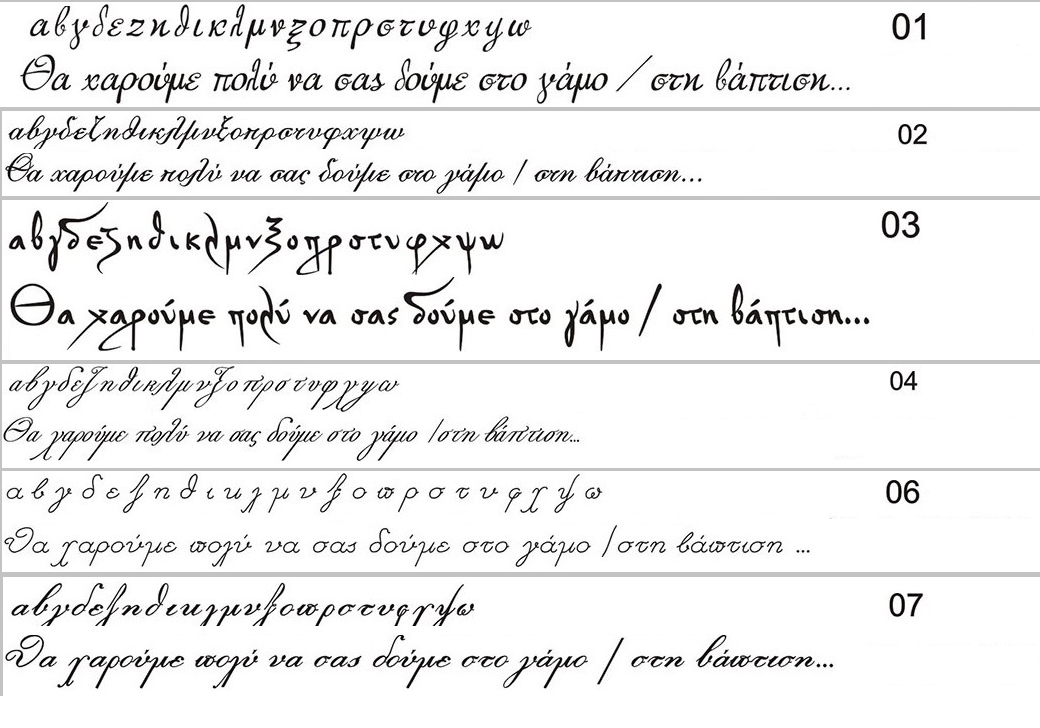 αβγδεζηθικλμνξοπρστυφχψω 01
Θα χαρούμε πολύ να σας δούμε στο γάμο / στη βάπτιση...
αβγδεζηθικλμνξοπρστυφχψω 02
Θα χαρούμε πολύ να σας δούμε στο γάμο / στη βάπτιση...
αβγδεζηθικλμνξοπρστυφχψω 03
Θα χαρούμε πολύ να σας δούμε στο γάμο / στη βάπτιση...
αβγδεζηθικλμνξοπρστυφχψω 04
Θα χαρούμε πολύ να σας δούμε στο γάμο /στη βάπτιση...
α β γ δ ε ζ η θ ι κ λ μ ν ξ ο π ρ σ τ υ φ χ ψ ω 06
Θα χαρούμε πολύ να σας δούμε στο γάμο /στη βάπτιση ...
αβγδεζηθικλμνξοπρστυφχψω 07
Θα χαρούμε πολύ να σας δούμε στο γάμο / στη βάπτιση...